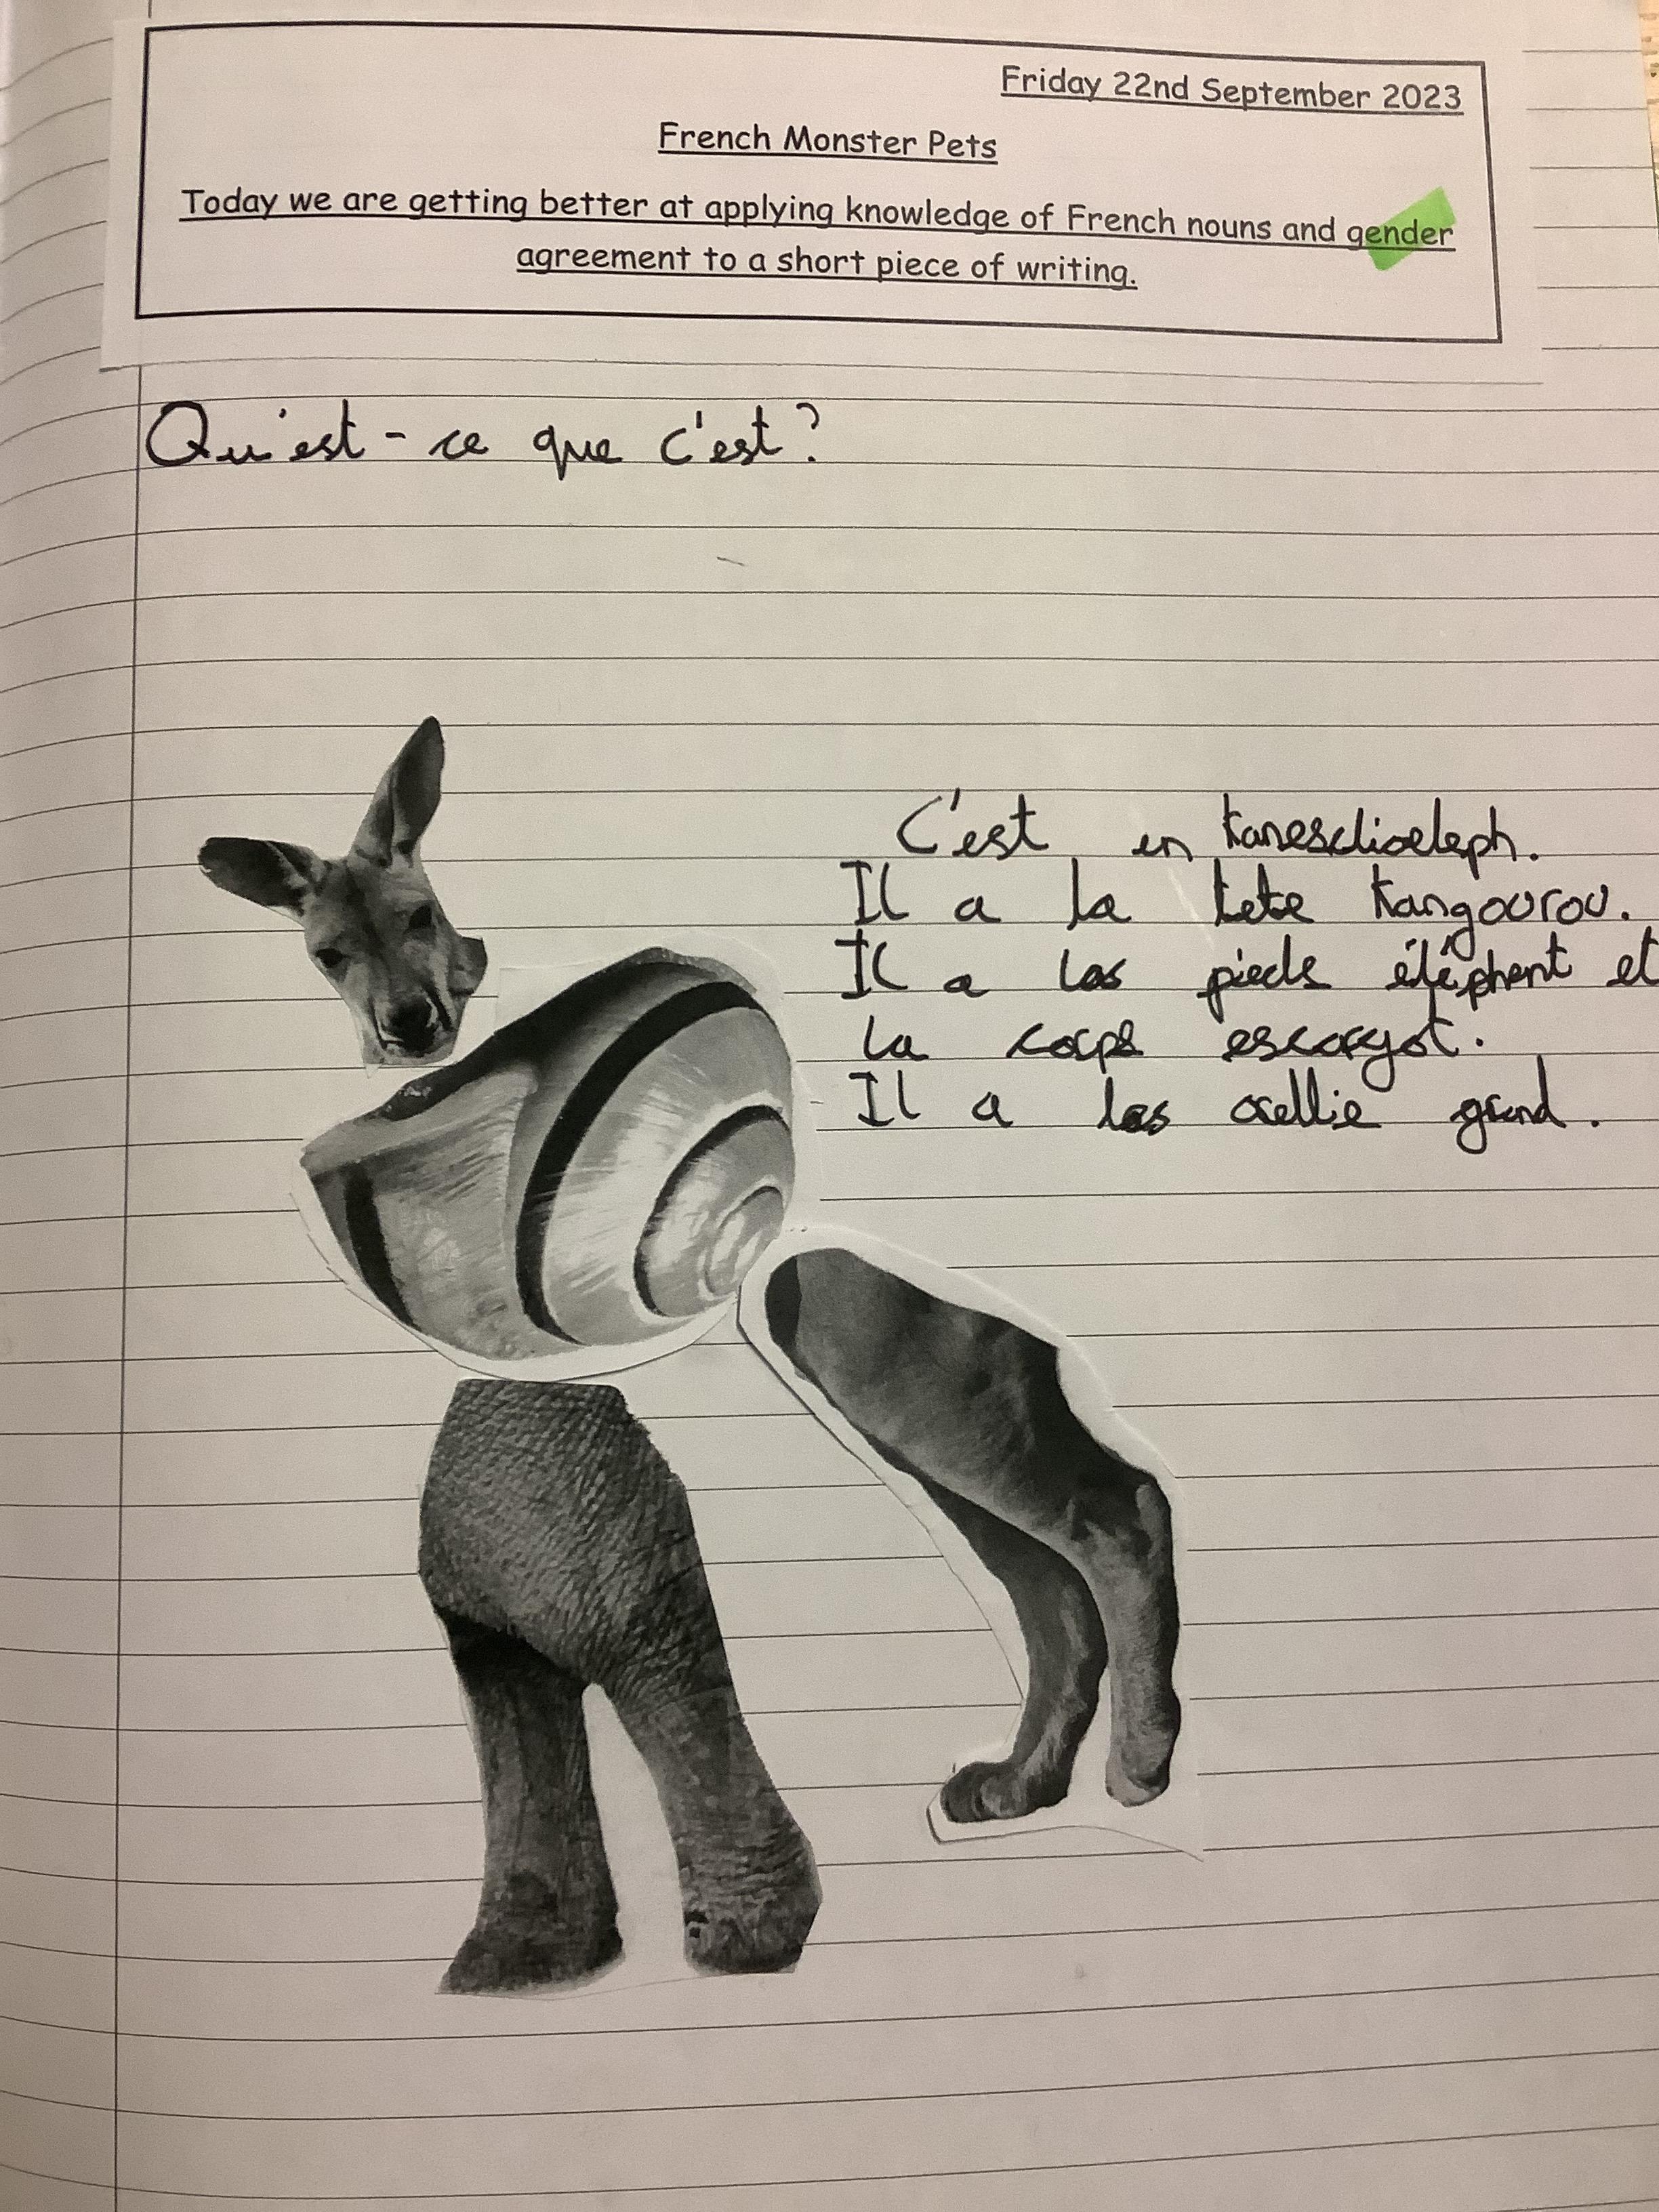 Friday 22nd September 2023
French Monster Pets
Today we are getting better at applying knowledge of French nouns and gender
agreement to a short piece of writing.
Qu'est-ce que c'est?
C'est en
Il a la tete kangourou.
Il a las pieds éléphant et
la corps escargot.
Il a las grand.